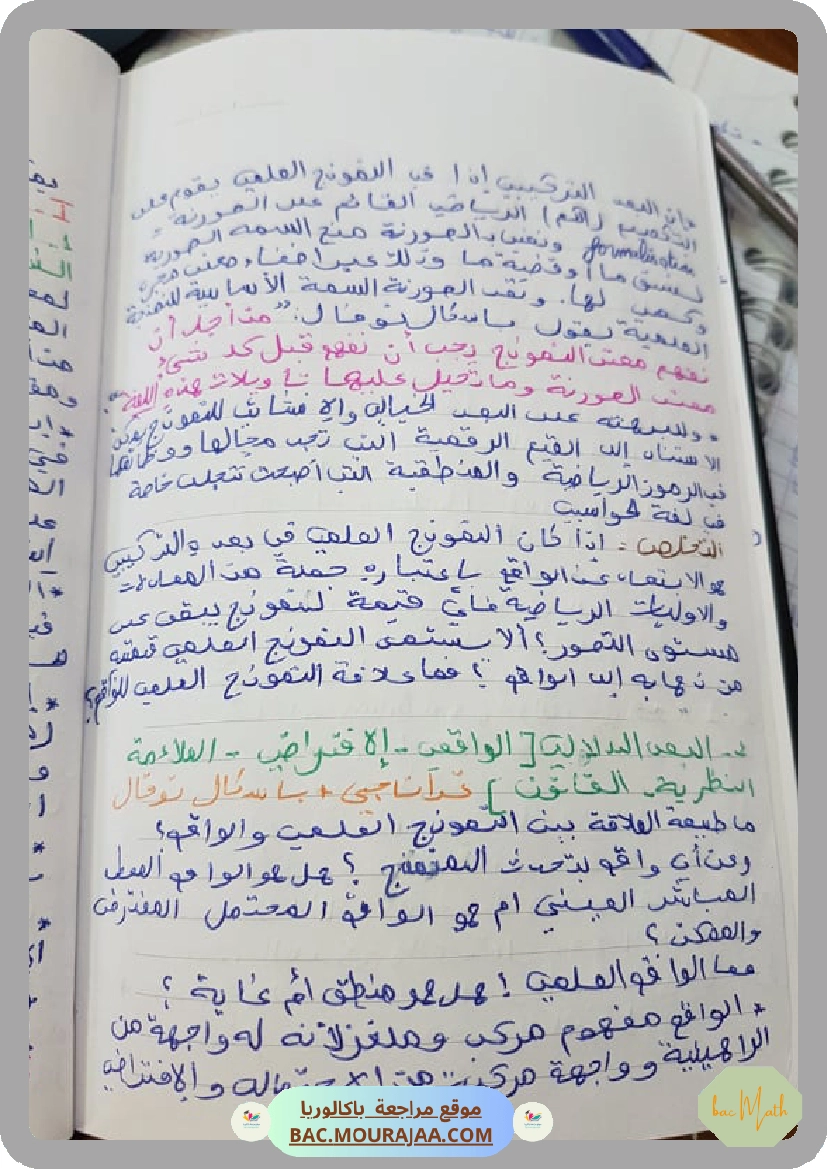 وإن البعد التركيبي إذا في النمونج العلمي يقوم على
التكميم (الكم) الرياضي القائم على الصورنة"
formalisation ونعني بالصورنة منح السمة الصورية
لنسق ما أو قضية ما وذلك عبر إخفاء معنى
لها. وتعد الصورنة السمة الأساسية للنمذجة
العلمية يقول باسكال نوفال: "من أجل أن
نفهم معنى النمونج يجب أن نفهم قبل كل شيء
معنى الصورنة وما تحيل عليها تأويلات هذه اللغة".
وللبرهنة على البعد الخيالي والإنشائي للنمونج يمكن
الاستناد إلى القيم الرقمية التي تجد مجالها ووظائفها
في الرموز الرياضية والمنطقية التي أضحت تتجلى خاصة
في لغة الحواسيب
التخلص: إذا كان النمونج العلمي في بعده التركيبي
هو الابتعاد عن الواقع بإعتباره جملة من المعادلات
والاوليات الرياضية فأي قيمة لنمونج يبقى على
مستوى التصور؟ ألا يستمد النمونج العلمي قيمته
من إلى الواقع؟ فما علاقة النمونج العلمي للواقع؟
2- البعد الدلالي [الواقعي - الإفتراضي - الملائمة
النظرية - القانون] قرآناجيي + باسكال نوفال
ما طبيعة العلاقة بين النمونج العلمي والواقع؟
وعن أي واقع يتحدث النمنمج؟ هل هو الواقع المعطى
المباشر العيني ام هو الواقع المحتمل المفترض
والممكن؟
مما الواقع العلمي! هل هو منطق أم غاية؟
* الواقع مفهوم مركب وملغز لأنه له واجهة من
الراهينية وواجهة مركبة من الإحتمال والإفتراض
موقع مراجعة باكالوريا
BAC.MOURAJAA.COM
bac Math